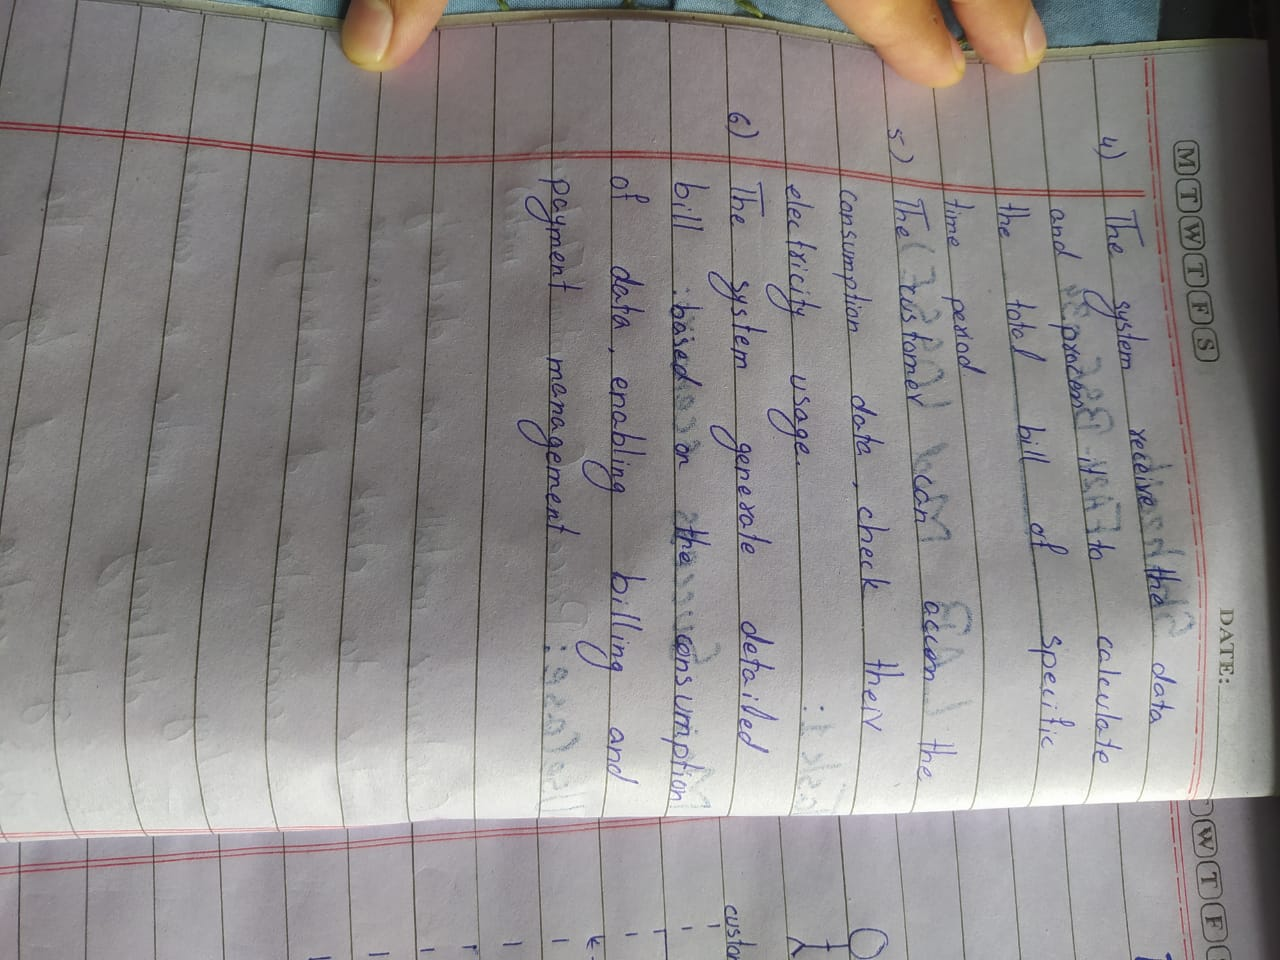 M T W T F S
DATE:
4) The system receive the data
and process it to calculate
the total bill of specific
time period
5) The customer can accem the
consumption data, check their
electricity usage.
6) The system generate detailed
bill based on the consumption
of data, enabling billing and
payment management
W T F
custom